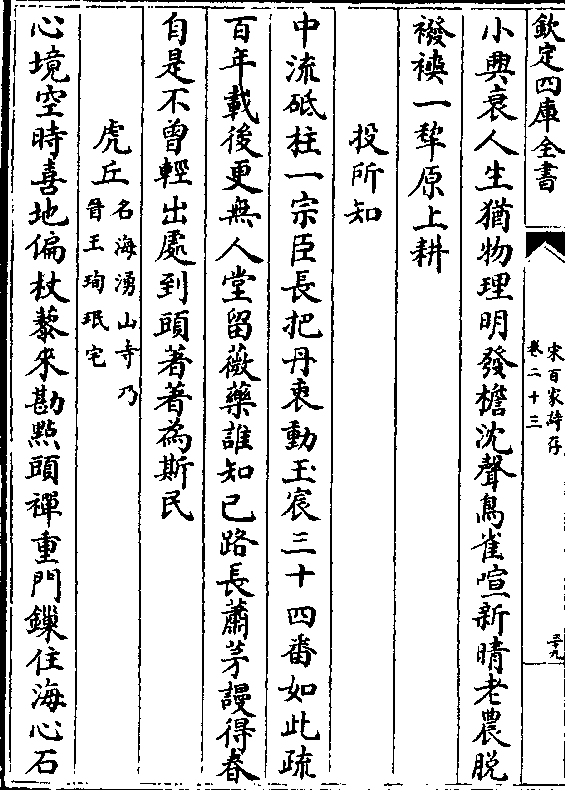 欽定四庫全書
宋百家詩存
卷二十三
三十九
小興衰人生猶物理明發檐沈聲鳥雀喧新晴老農脫
襏襫一犂原上耕
投所知
中流砥柱一宗臣長把丹衷動玉宸三十四番如此疏
百年載後更無人堂留薇藥誰知己路長蕭茅謾得春
自是不曾輕出處到頭著著為斯民
虎丘名海湧山寺乃
晉王珣珉宅
心境空時喜地偏杖藜來勘點頭禪重門鏁住海心石